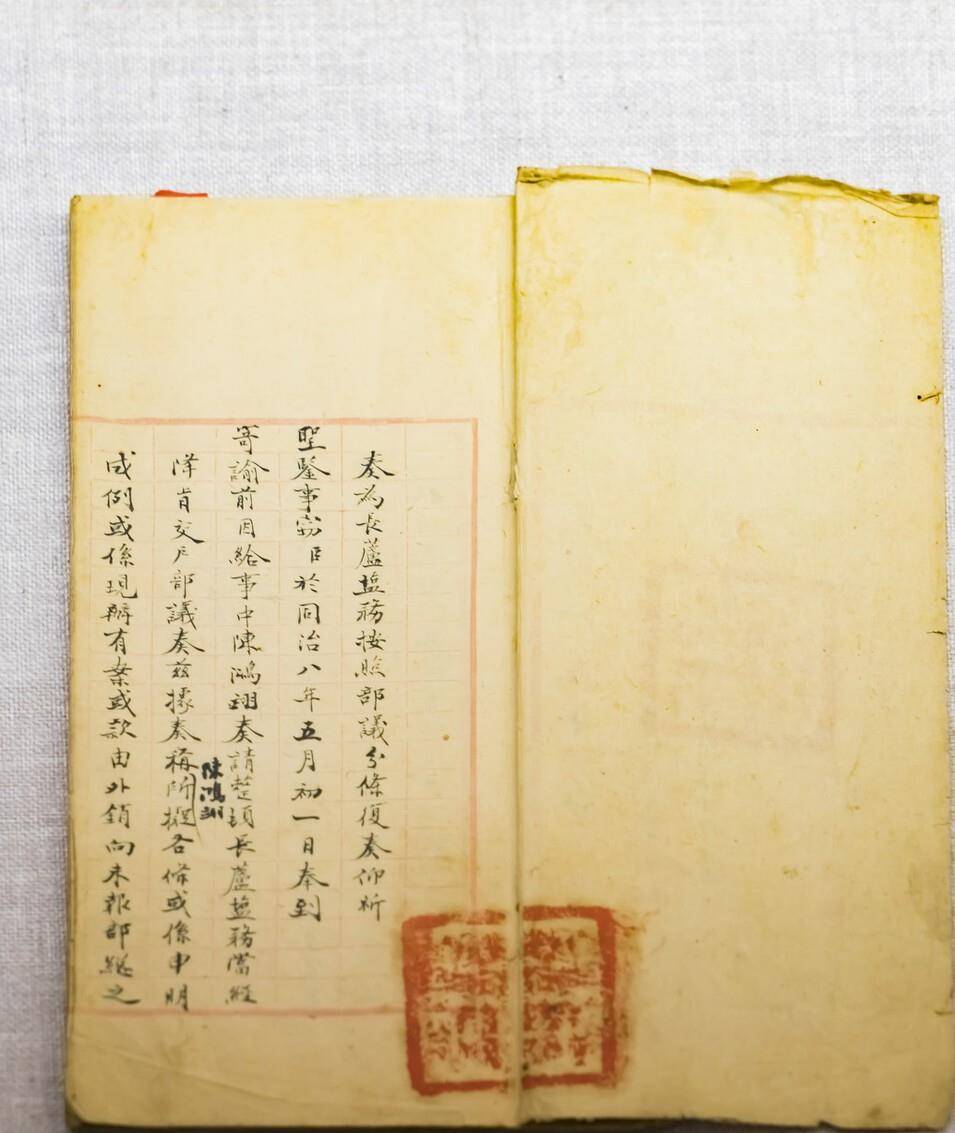 奏為長蘆塩務按照部議分條復奏仰祈
聖鑒事窃臣於同治八年五月初一日奉到
寄諭前因給事中陳鴻翊奏請整頓長蘆塩務當經
降旨交戶部議奏茲據奏稱所擬各條或係申明
陳鴻翊
成例或係現辦有案或款由外銷向未報部總之